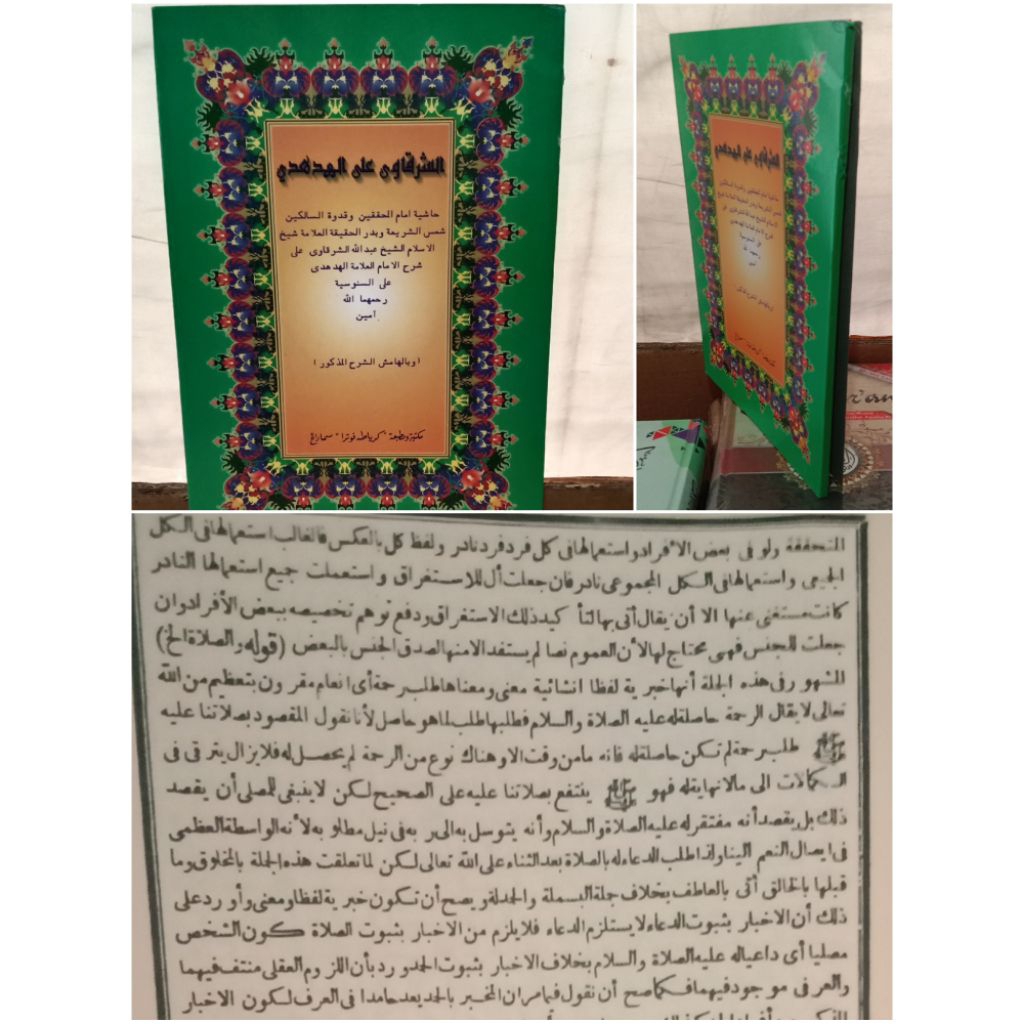 الشرقاوى على الهدهدي
حاشية امام المحققين وقدوة السالكين
شمس الشريعة وبدر الحقيقة العلامة شيخ
الاسلام الشيخ عبد الله الشرقاوى على
شرح الامام العلامة الهدهدى
على السنوسية
رحمهما الله
آمين
(وبالهامش الشرح المذكور)
مكتبة ومطبعة "كرياطه فوترا" سماراغ
الشرقاوى على الهدهدي
حاشية امام المحققين وقدوة السالكين
شمس الشريعة وبدر الحقيقة العلامة شيخ
الاسلام الشيخ عبد الله الشرقاوى على
شرح الامام العلامة الهدهدى
على السنوسية
رحمهما الله
آمين
المتحققة ولو فى بعض الأفراد واستعمالها فى كل فرد فرد نادر ولفظ كل بالعكس فالغالب استعمالها فى الكل
الجميعى واستعمالها فى الكل المجموعى نادر فان جعلت أل للاستغراق واستعملت جميع استعمالها النادر
كانت مستغنى عنها الا أن يقال أتى بها لتأكيد ذلك الاستغراق ودفع توهم تخصيصه ببعض الأفراد وان
جعلت للجنس فهى محتاج لها لأن العموم نصا لم يستفد الا منها لصدق الجنس بالبعض (قوله والصلاة الخ)
المشهور فى هذه الجملة أنها خبرية لفظا انشائية معنى ومعناها طلب رحمة أى انعام مقرون بتعظيم من الله
تعالى لا يقال الرحمة حاصلة له عليه الصلاة والسلام فطلبها طلب لما هو حاصل لأنا نقول المقصود بصلاتنا عليه
ﷺ طلب رحمة لم تكن حاصلة له فانه ما من وقت الا وهناك نوع من الرحمة لم يحصل له فلا يزال يترقى فى
الكمالات الى مالا نهاية له فهو ﷺ ينتفع بصلاتنا عليه على الصحيح لكن لا ينبغى للمصلى أن يقصد
ذلك بل يقصد أنه مفتقر له عليه الصلاة والسلام وأنه يتوسل به الى ربه فى نيل مطلوبه لأنه الواسطة العظمى
فى ايصال النعم الينا ولذا طلب الدعاء له بالصلاة بعد الثناء على الله تعالى لكن لما تعلقت هذه الجملة بالمخلوق وما
قبلها بالخالق أتى بالعاطف بخلاف جملة البسملة والحمدلة ويصح أن تكون خبرية لفظا ومعنى وأورد على
ذلك أن الاخبار بثبوت الدعاء لا يستلزم الدعاء فلا يلزم من الاخبار بثبوت الصلاة كون الشخص
مصليا أى داعيا له عليه الصلاة والسلام بخلاف الاخبار بثبوت الحمد ورد بأن اللزوم العقلى منتف فيهما
والعرفى موجود فيهما فكما صح أن نقول فيما مر ان المخبر بالحمد يعد حامدا فى العرف لكون الاخبار